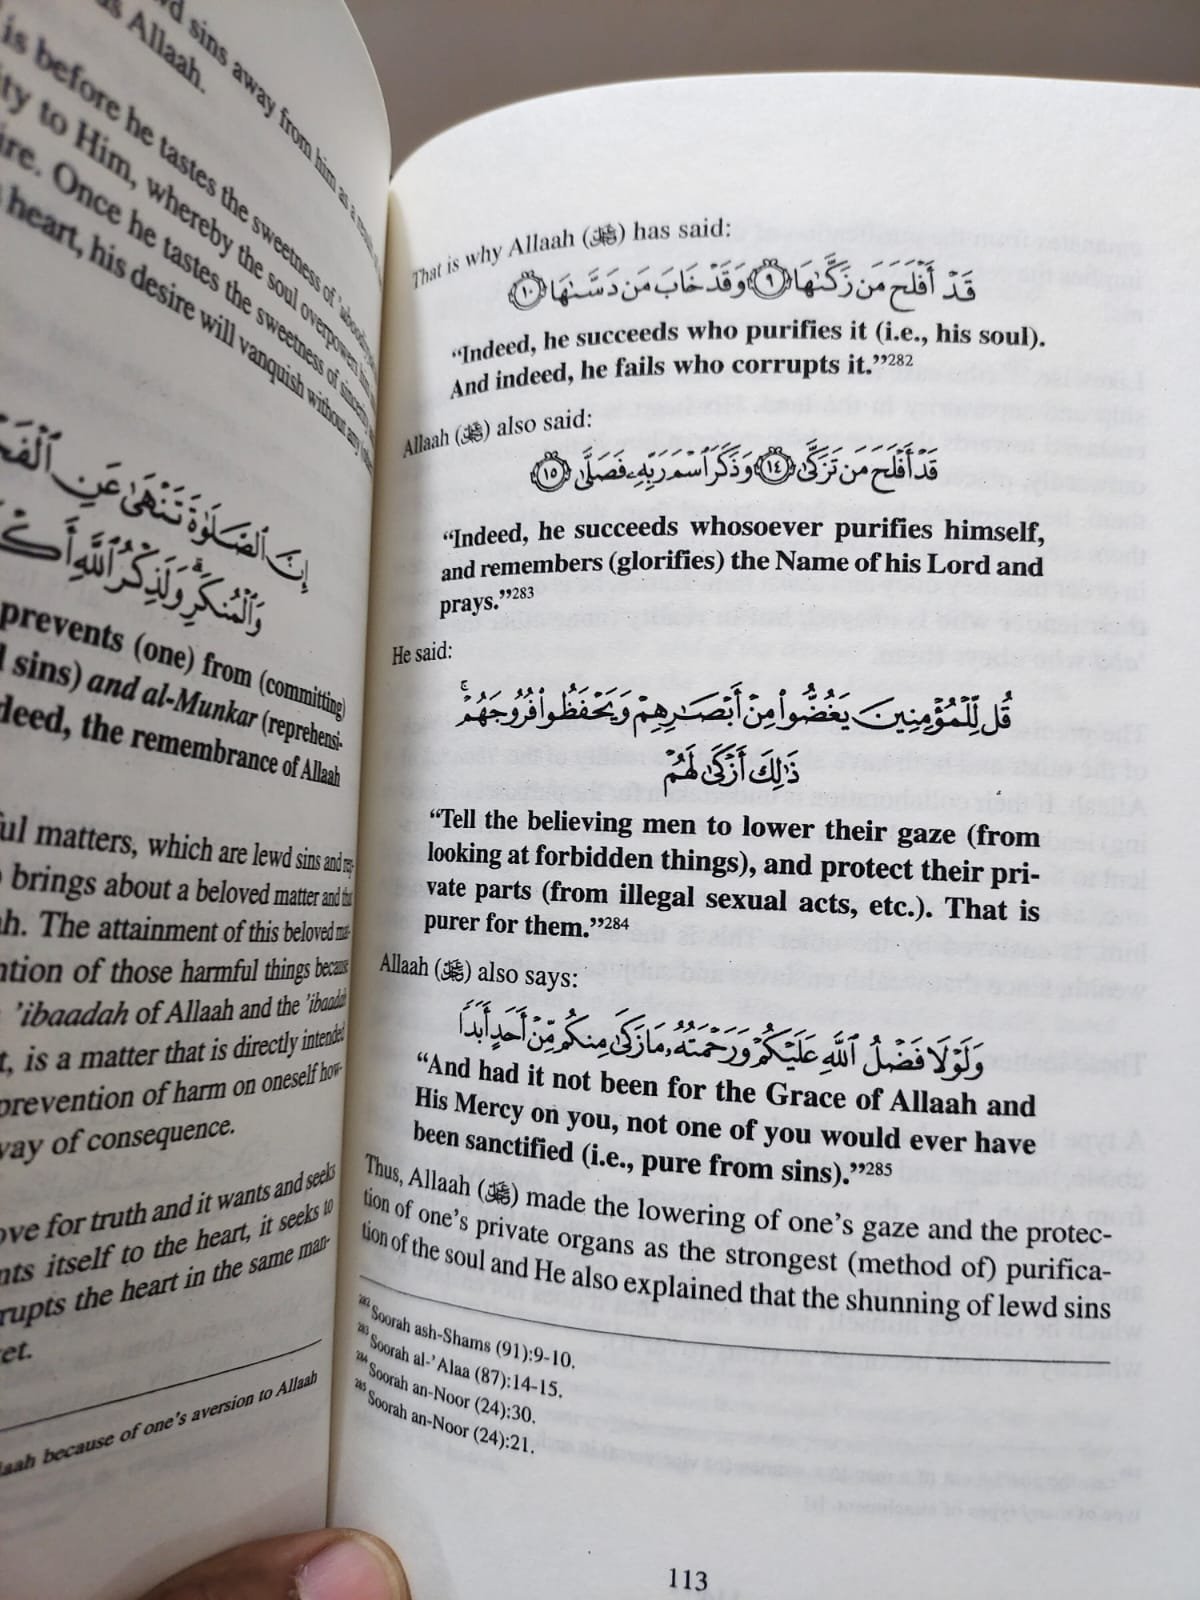 wd sins away from him as a
Allaah.
is before he tastes the sweetness of 'uboodiyyah
ity to Him, whereby the soul overpowers him
ire. Once he tastes the sweetness of sincerity
heart, his desire will vanquish without any
إِنَّ ٱلصَّلَوٰةَ تَنْهَىٰ عَنِ
وَٱلْمُنكَرِ ۗ وَلَذِكْرُ ٱللَّهِ
prevents (one) from (committing)
sins) and al-Munkar (reprehensi-
deed, the remembrance of Allaah
ul matters, which are lewd sins and rep-
brings about a beloved matter and that
ah. The attainment of this beloved mat-
ntion of those harmful things because
'ibaadah of Allaah and the 'ibaadah
t, is a matter that is directly intended
prevention of harm on oneself how-
way of consequence.
ove for truth and it wants and seeks
nts itself to the heart, it seeks to
rrupts the heart in the same man-
et.
laah because of one's aversion to Allaah
That is why Allaah (ﷻ) has said:
قَدْ أَفْلَحَ مَن زَكَّىٰهَا ٩ وَقَدْ خَابَ مَن دَسَّىٰهَا ١٠
“Indeed, he succeeds who purifies it (i.e., his soul).
And indeed, he fails who corrupts it.”282
Allaah (ﷻ) also said:
قَدْ أَفْلَحَ مَن تَزَكَّىٰ ١٤ وَذَكَرَ ٱسْمَ رَبِّهِۦ فَصَلَّىٰ ١٥
“Indeed, he succeeds whosoever purifies himself,
and remembers (glorifies) the Name of his Lord and
prays.”283
He said:
قُل لِّلْمُؤْمِنِينَ يَغُضُّوا۟ مِنْ أَبْصَـٰرِهِمْ وَيَحْفَظُوا۟ فُرُوجَهُمْ ۚ
ذَٰلِكَ أَزْكَىٰ لَهُمْ
“Tell the believing men to lower their gaze (from
looking at forbidden things), and protect their pri-
vate parts (from illegal sexual acts, etc.). That is
purer for them.”284
Allaah (ﷻ) also says:
وَلَوْلَا فَضْلُ ٱللَّهِ عَلَيْكُمْ وَرَحْمَتُهُۥ مَا زَكَىٰ مِنكُم مِّنْ أَحَدٍ أَبَدًا
“And had it not been for the Grace of Allaah and
His Mercy on you, not one of you would ever have
been sanctified (i.e., pure from sins).”285
Thus, Allaah (ﷻ) made the lowering of one's gaze and the protec-
tion of one's private organs as the strongest (method of) purifica-
tion of the soul and He also explained that the shunning of lewd sins
282 Soorah ash-Shams (91):9-10.
283 Soorah al-'Alaa (87):14-15.
284 Soorah an-Noor (24):30.
285 Soorah an-Noor (24):21.
113